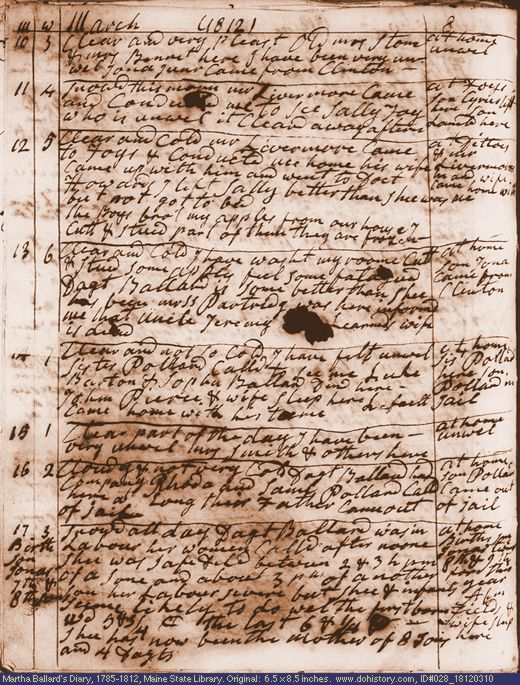 m w March 1812
10 3 Clear and very Pleast Old mrs Stone at home
& mrs Bennet here I have been very un unwel
wel Jona Junr Came from Clinton
11 4 Snowd this morn mr Livermore Came at Toys
and Conducted me to See Sally Toy Son Cyrus left
who is unwel it Cleard away after here Son
12 5 Clear and Cold mr Livermore Came at Dittoes
to Toys & Conducted me home his wife
Came up with him and went to Doct
Howards I left Sally better than Shee was me Came home with
but not got to be
the Boys brot my apples from our house I
Cutt & Stued part of them they are frozen
13 6 Clear and Cold I have washt my room Cut at home
& Stud Some apples feel Some fataugd Son Jona
Dagt Ballard is Some better than Shee Came from
has been mrss Partridg was here informd Clinton
me that Uncle Jeremy Learned wife
is dead
14 Clear and not so Cold I have felt unwel at home
Sister Pollard Calld to See me Luke
Barton & Sopha Ballard dind here Son
John Pierce & wife Sleep here Pollard in
Came home with his teame Jail
15 1 Clear part of the day I have been at home
very unwel mrs Smith & others here unwel
16 2 Cloudy & not very Cold Dagt Ballard had at home
Company Rhoda and Samel Pollard Calld Son Pollard
here a Long their Father Came out Came out
of Jail of Jail
17 3 Snowd all day Dagt Ballard was in at home
Birth Labour her women Calld after noone Births
Shee was Safe deld between 2 & 3 h pm
of a Sone and about 3 pm of a nother 8th
7th & Son her Labour Severe but Shee & infants year
8th Seeme likely to do wel the first born
wd 5¾ the last 6 & ¼
Shee has now been the mother of 8 Sons here
and 4 Dagts
Martha Ballard's Diary, 1785-1812, Maine State Library. Original: 6.5 x 8.5 inches. www.dohistory.com, ID#028_18120310